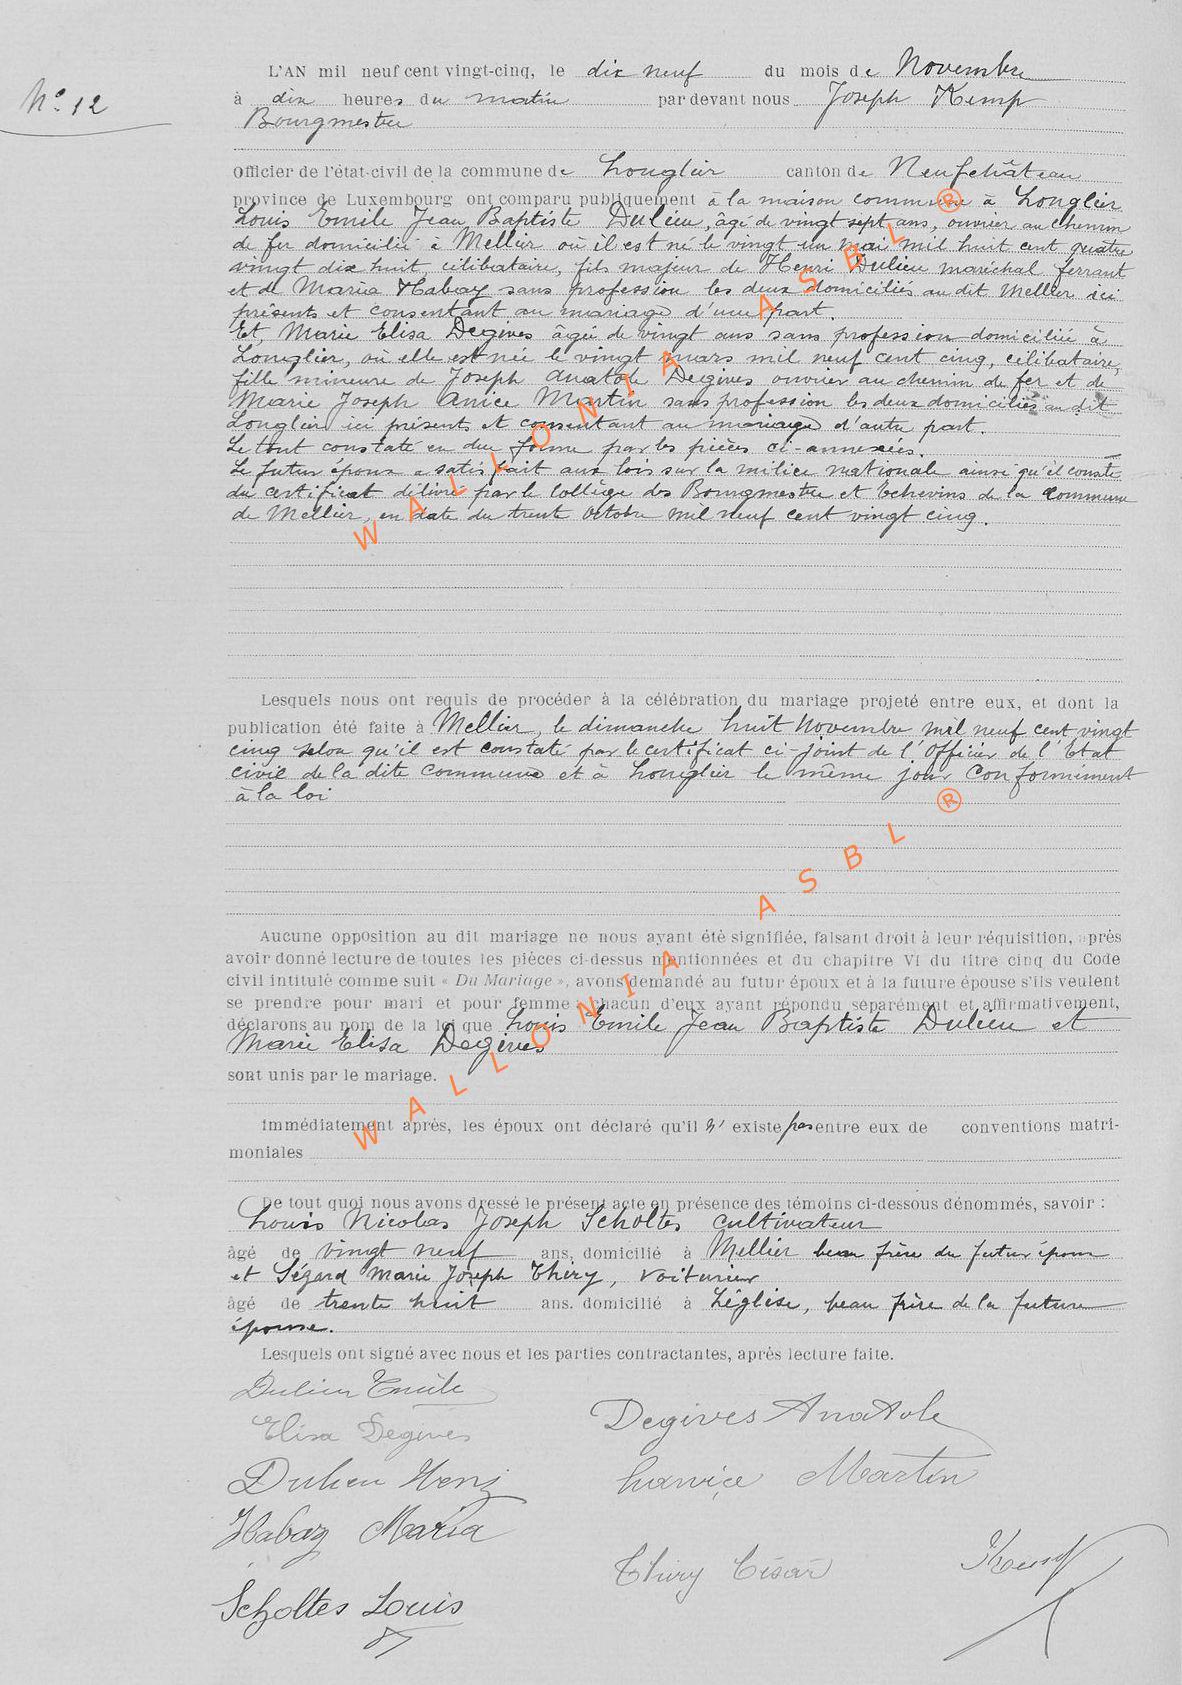 N° 12
L'AN mil neuf cent vingt-cinq, le dix neuf du mois de Novembre
à dix heures du matin par devant nous Joseph Kemp
Bourgmestre
Officier de l'état-civil de la commune de Longlier canton de Neufchâteau
province de Luxembourg ont comparu publiquement à la maison commune à Longlier
Louis Emile Jean Baptiste Dulieu, âgé de vingt sept ans, ouvrier au chemin
de fer domicilié à Mellier où il est né le vingt un mai mil huit cent quatre
vingt dix huit, célibataire, fils majeur de Henri Dulieu maréchal ferrant
et de Maria Habay sans profession les deux domiciliés au dit Mellier ici
présents et consentant au mariage d'une part.
Et, Marie Elisa Degives âgée de vingt ans sans profession domiciliée à
Longlier, où elle est née le vingt mars mil neuf cent cinq, célibataire,
fille mineure de Joseph Anatole Degives ouvrier au chemin de fer et de
Marie Joseph Martin sans profession les deux domiciliés au dit
Longlier ici présents et consentant au mariage d'autre part.
Le tout constaté en due forme par les pièces ci-annexées.
Le futur époux a satisfait aux lois sur la milice nationale ainsi qu'il conste
du certificat délivré par le Collège des Bourgmestre et Echevins de la Commune
de Mellier, en date du trente Octobre mil neuf cent vingt cinq.
Lesquels nous ont requis de procéder à la célébration du mariage projeté entre eux, et dont la
publication été faite à Mellier, le dimanche huit Novembre mil neuf cent vingt
cinq selon qu'il est constaté par le certificat ci-joint de l'Officier de l'Etat
civil de la dite Commune et à Longlier le même jour Conformément
à la loi
Aucune opposition au dit mariage ne nous ayant été signifiée, faisant droit à leur réquisition, après
avoir donné lecture de toutes les pièces ci-dessus mentionnées et du chapitre VI du titre cinq du Code
civil intitulé comme suit « Du Mariage », avons demandé au futur époux et à la future épouse s'ils veulent
se prendre pour mari et pour femme : chacun d'eux ayant répondu séparément et affirmativement,
déclarons au nom de la loi que Louis Emile Jean Baptiste Dulieu et
Marie Elisa Degives
sont unis par le mariage.
Immédiatement après, les époux ont déclaré qu'il n'existe pas entre eux de conventions matri-
moniales
De tout quoi nous avons dressé le présent acte en présence des témoins ci-dessous dénommés, savoir :
Louis Nicolas Joseph Scholtes cultivateur
âgé de vingt neuf ans, domicilié à Mellier beau frère du futur époux
et Ségard Marie Joseph Thiry, voiturier
âgé de trente huit ans. domicilié à Léglise, beau frère de la future
épouse.
Lesquels ont signé avec nous et les parties contractantes, après lecture faite.
Dulieu Emile
Elisa Degives
Degives Anatole
Dulieu Henri
Martin
Habay Maria
Thiry César
Kemp
Scholtes Louis
WALLONIA ASBL ®
WALLONIA ASBL ®